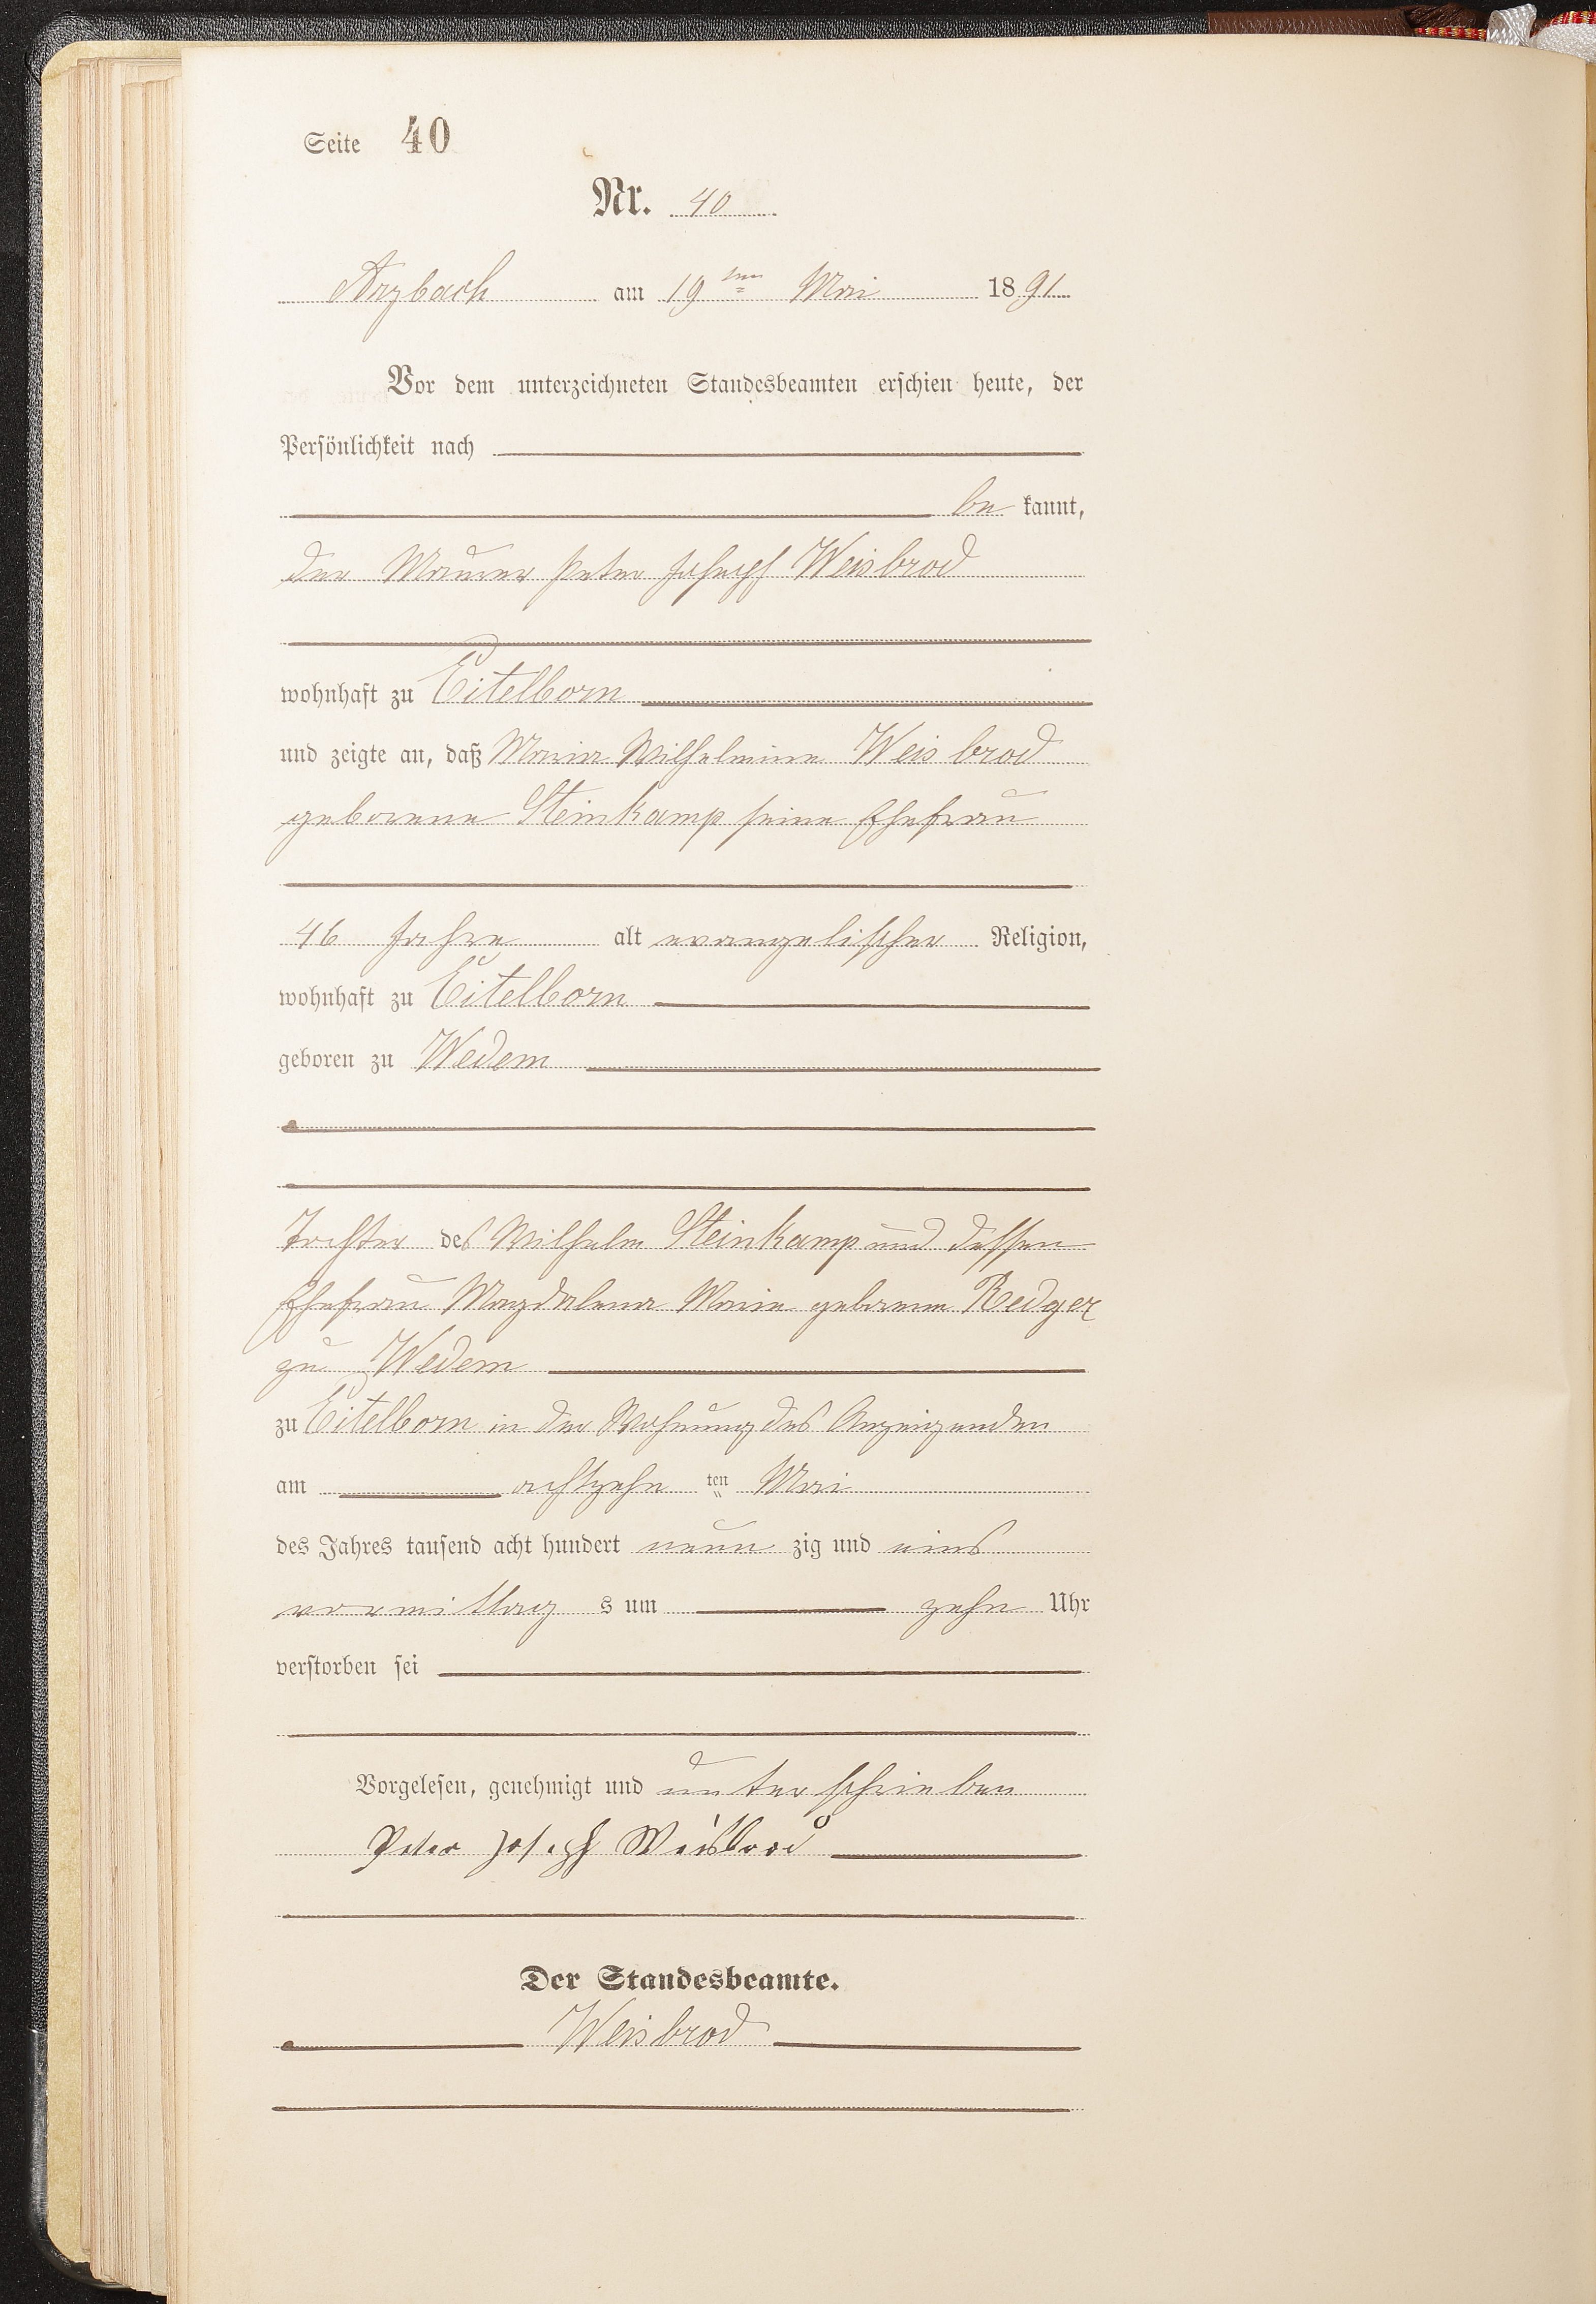 Seite 40
Nr. 40
Arzbach am 19ten Mai 1891
Vor dem unterzeichneten Standesbeamten erschien heute, der
Persönlichkeit nach
be kannt,
der Maurer Peter Joseph Weisbrod
wohnhaft zu Eitelborn
und zeigte an, daß Maria Wilhelmine Weisbrod
geborene Steinkamp seine Ehefrau
46 Jahre alt evangelischer Religion,
wohnhaft zu Eitelborn
geboren zu Wedem
Tochter des Wilhelm Steinkamp und dessen
Ehefrau Magdalena Maria geborene Redger
zu Wedem
zu Eitelborn in der Wohnung des Anzeigenden
am achtzehn ten Mai
des Jahres tausend acht hundert neun zig und eins
vormittag s um zehn Uhr
verstorben sei
Vorgelesen, genehmigt und unterschrieben
Peter Joseph Weisbrod
Der Standesbeamte.
Weisbrod